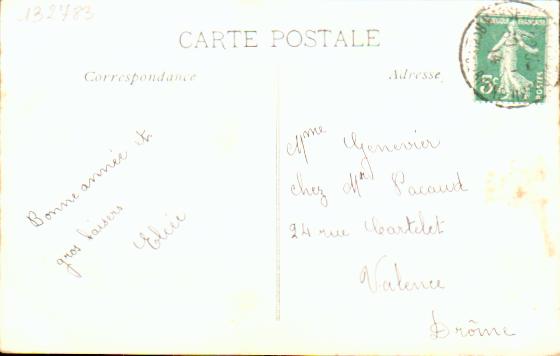 132783
CARTE POSTALE
Correspondance
Adresse
5c
POSTES
Bonne année et
gros baisers
Mme Genevier
chez Mr Pacaud
24 rue Cartelet
Valence
Drôme